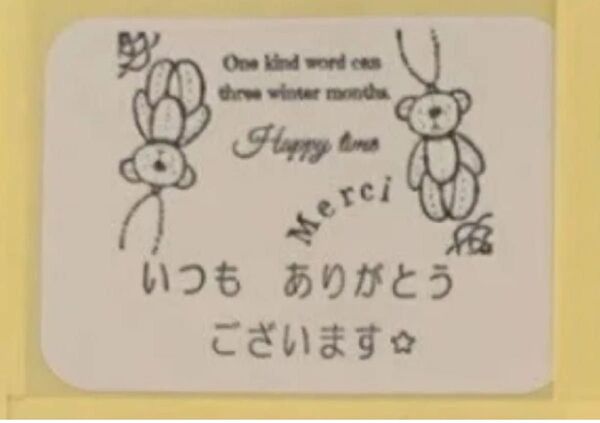 One kind word can
three winter months.
Happy time
Merci
いつも ありがとう
ございます☆